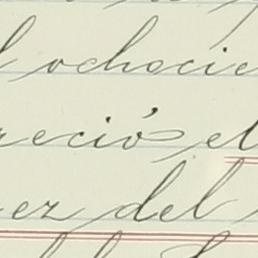 l ochocie
reció el
ez del